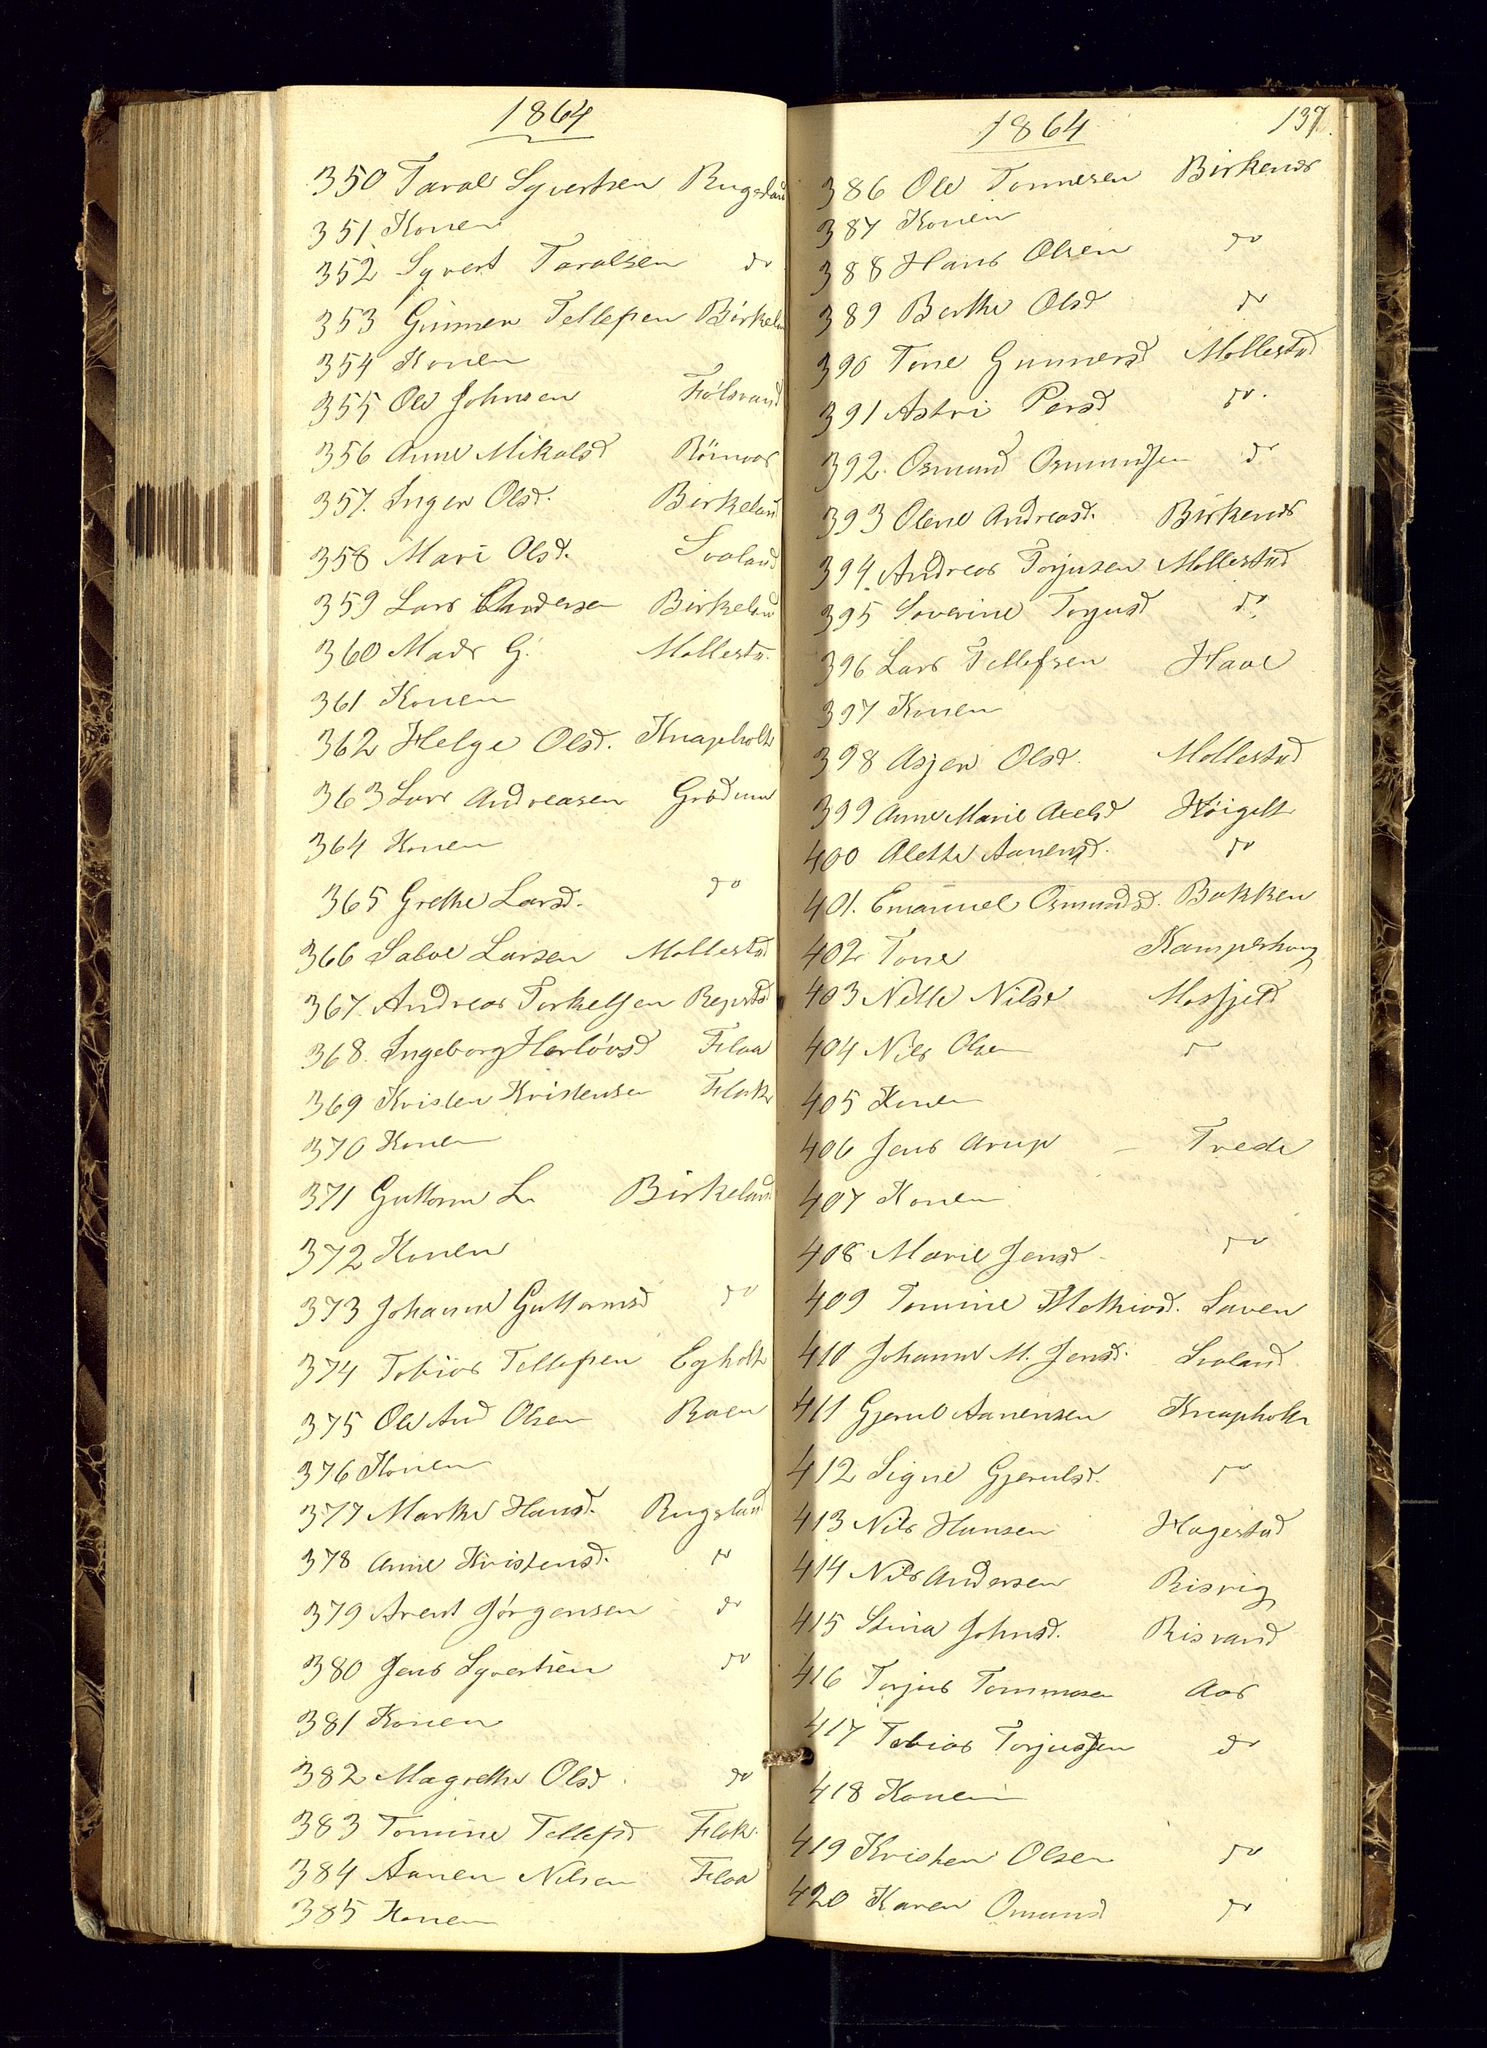 1864
350 Taral Syvertsen Rugsland
351 Konen
352 Syvert Taralsen do
353 Gunner Tellefsen Birkeland
354 Konen
355 Ole Johnsen Fiølsvand
356 Anne Mikalsd
357. Inger Olsd. Birkeland
358 Mari Olsd. Svaland
359 Lars Andersen Birkeland
360 Mads G. Mollestad
361 Konen
362 Helge Olsd. Knapholt
363 Lars Andreasen
364 Konen
365 Grethe Larsd. do
366 Salve Larsen Mollestad
367. Andreas Torkelsen Repstd
368. Ingeborg Herløvsd Flaa
369 Kristen Kristensen Flak
370 Konen
371 Guttorm L. Birkeland
372 Konen
373 Johanne Guttormsd do
374 Tobias Tellefsen Egholt
375 Ole And Olsen Roen
376 Konen
377 Marthe Hansd. Rugsland
378 Anne Kristensd. do
379 Arent Jørgensen do
380 Jens Syvertsen do
381 Konen
382 Magrethe Olsd. do
383 Tomine Tellefsd Flak
384 Aanen Nilsen Flaa
385 Konen
1864 137.
386 Ole Tonnesen Birkenes
387 Konen
388 Hans Olsen do
389 Berthe Olsd do
390 Tone Gunnersd Mollestad
391 Astri Persd do.
392. Osmund Osmundsen do
393 Olene Andreasd. Birkenes
394. Andreas Torjusen Mollestad
395 Severine Torjusd do
396 Lars Tellefsen Haal
397 Konen
398 Asjer Olsd. Mollestad
399 Anne Marie Axelsd Høigilt
400 Alette Aanensd. do
401. Emanuel Osmundsd. Bakken
402 Tone Kamperhaug
403 Nille Nilsd Mosfjeld
404 Nils Olsen do
405 Konen
406 Jens Arup - Trede
407 Konen
408 Marie Jensd. do
409 Tomine Mathiasd. Saven
410 Johanne M. Jensd. Svaland
411 Gjerul Aanensen Knapholt
412 Signe Gjerulsd. do
413 Nils Hansen Hagestad
414 Nils Andersen Risvig
415 Stina Johnsd. Risvand
416 Torjus Tommesen Aas
417 Tobias Torjussen do
418 Konen
419 Kristen Olsen do
420 Karen Omunsd do